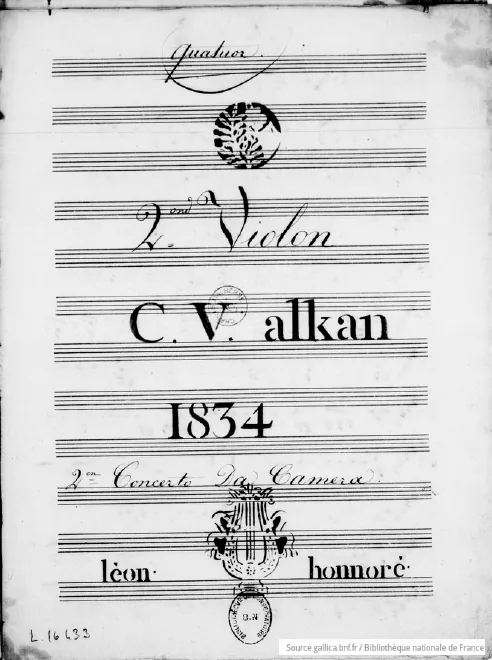 Quatuor.
2.ond Violon
C. V. alkan
1834
2.en Concerto Da Camera.
léon. honnoré.
B.N
L. 16 633
Source gallica.bnf.fr / Bibliothèque nationale de France